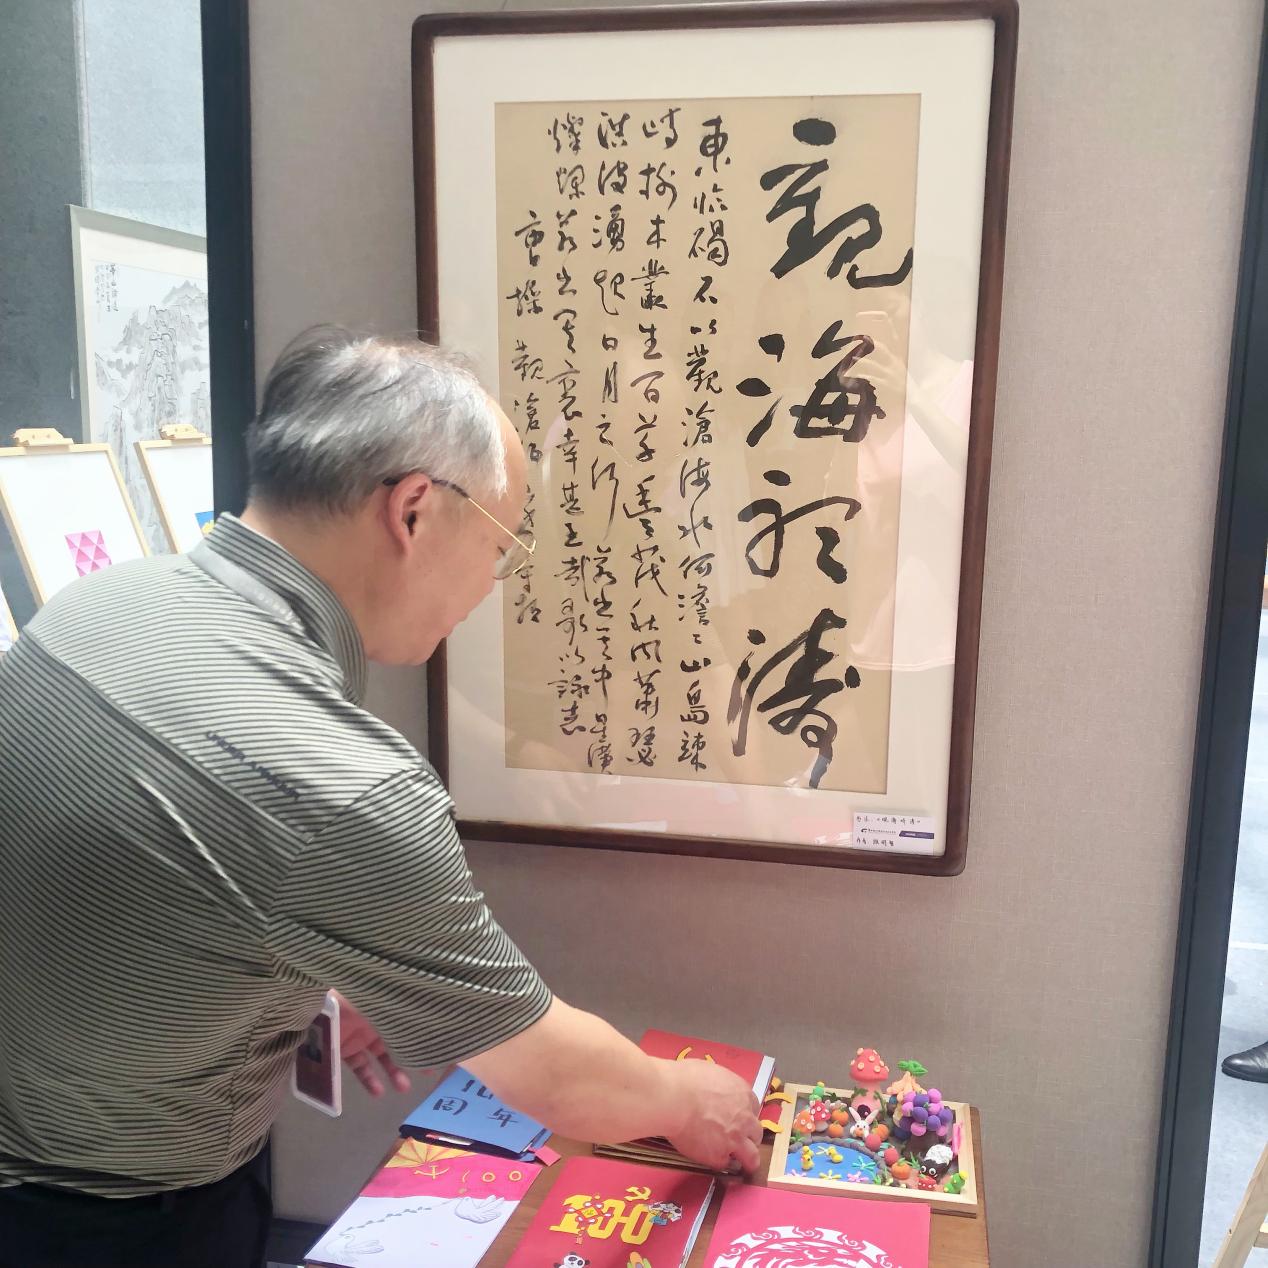 觀海聽濤
東臨碣石以觀滄海水何澹〻山島竦
峙樹木叢生百草豐茂秋風蕭瑟
洪波湧起日月之行若出其中星漢
燦爛若出其裏幸甚至哉歌以詠志
曹操觀滄海
作者
UNDER ARMOUR
周年